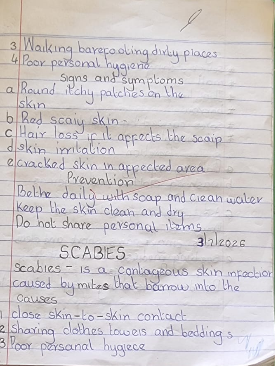 3 Walking barefooting dirty places
4 Poor personal hygiene
Signs and symptoms
a Round itchy patches on the
skin
b Red scaly skin
c Hair loss if it affects the scalp
d skin irritation
e cracked skin in affected area
Prevention
Bathe daily with soap and clean water
Keep the skin clean and dry
Do not share personal items
3/2/2026
SCABIES
scabies - is a contageous skin infection
caused by mites that barrow into the
causes
1 close skin-to-skin contact
2 sharing clothes towels and beddings
3 Poor personal hygiece